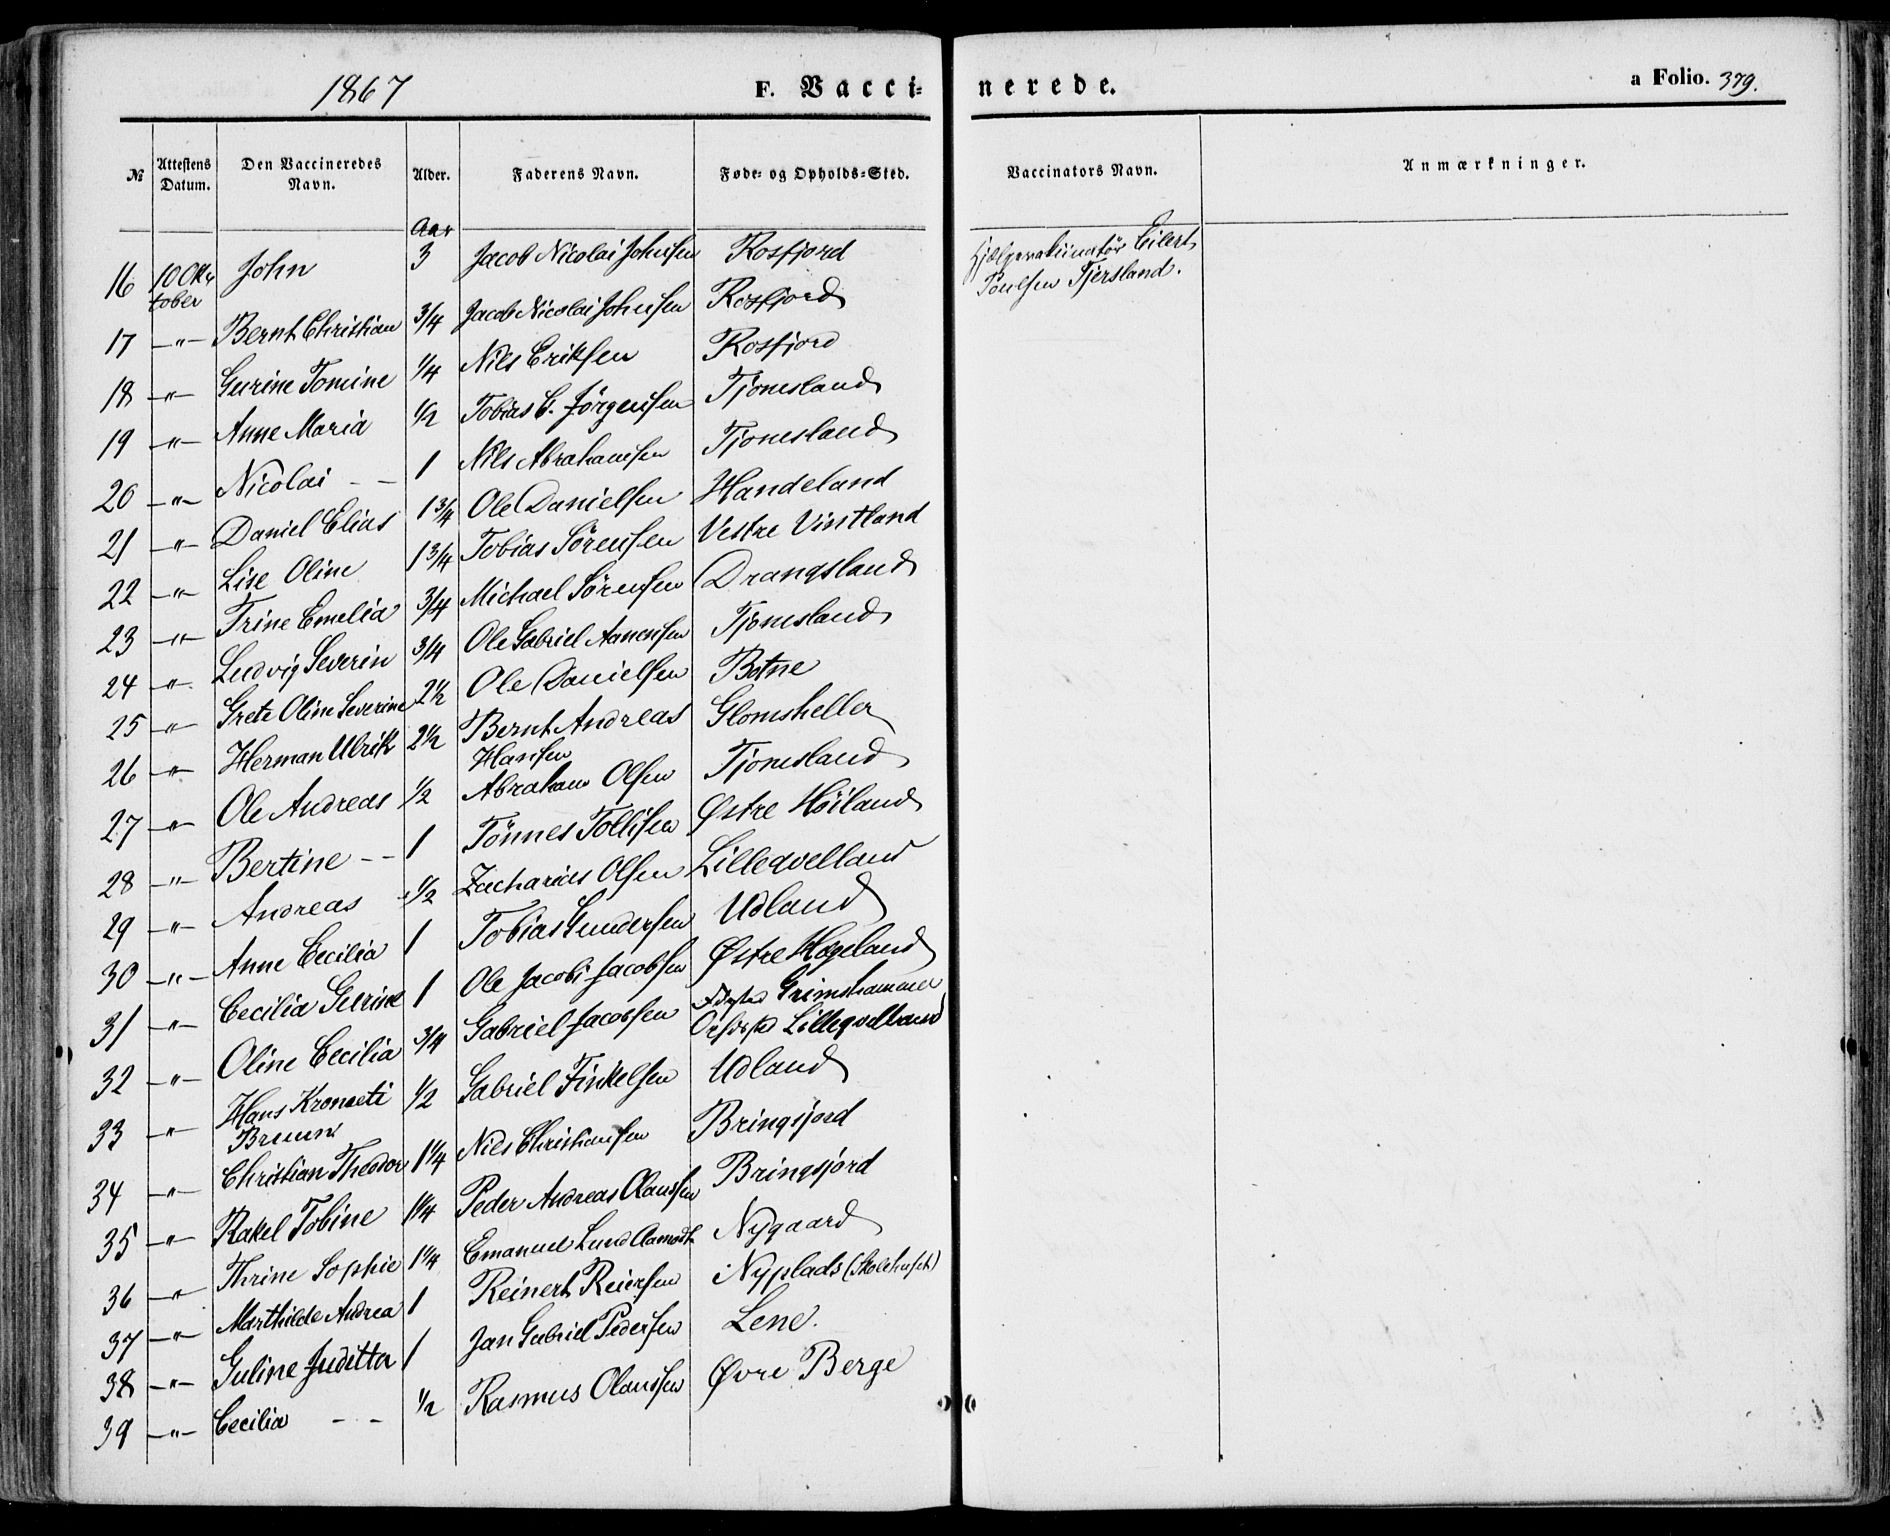 1867 F. Vacci= nerede. a Folio. 379.
№ Attestens Datum. Den Vaccineredes Navn. Alder. Faderens Navn. Føde= og Opholds=Sted. Vaccinators Navn. Anmærkninger.
Aar
16 10 Ok- tober John 3 Jacob Nicolai Johnsen Rosfjord Hjælpevakcinatør Eilert
Poulsen Tjersland.
17 —"— Bernt Christian 3/4 Jacob Nicolai Johnsen Rosfjord
18 —"— Gurine Tomine 1/4 Nils Eriksen Rosfjord
19 —"— Anne Maria 1/2 Tobias G. Jørgensen Tjomsland
20 —"— Nicolai - - 1 Nils Abrahamsen Tjomsland
21 —"— Daniel Elias 1 3/4 Ole Danielsen Handeland
22 —"— Lise Oline 1 3/4 Tobias Sørensen Vestre Vintland
23 —"— Trine Emelia 3/4 Michael Sørensen Drangsland
24 —"— Ludvig Severin 3/4 Ole Gabriel Aanensen Tjomsland
25 —"— Grete Oline Severine 2 1/2 Ole Danielsen Botne
26 —"— Herman Ulrik 2 1/2 Bernt Andreas Glomsheller
Hansen
27 —"— Ole Andreas 1/2 Abraham Olsen Tjomsland
28 —"— Bertine - - 1 Tönnes Tollisen Østre Höiland
29 —"— Andreas 1/2 Zacharias Olsen Lilleqvelland
30 —"— Anne Cecilia 1 Tobias Gundersen Udland
31 —"— Cecilia Gurine 1 Ole Jacob Jacobsen Østre Hageland
32 —"— Oline Cecilia 3/4 Gabriel Jacobsen Fdsted Grimshammer
Lilleqvelland
33 —"— Hans 1/2 Gabriel Finkelsen Udland
Bruun
34 —"— Christian Theodor 1 1/4 Nils Christiansen Bringsjord
35 —"— Rakel Tobine 1 1/4 Peder Andreas Olaussen Bringsjord
36 —"— Thrine Sophie 1 1/4 Emanuel Lund Aamodt Nygaard
37 —"— Marthilde Andrea 1 Reinert Reiersen Nyplads (Skolehuset)
38 —"— Guline Juditta 1 Jan Gabriel Pedersen Lene.
39 —"— Cecilia - - 1/2 Rasmus Olaussen Øvre Berge